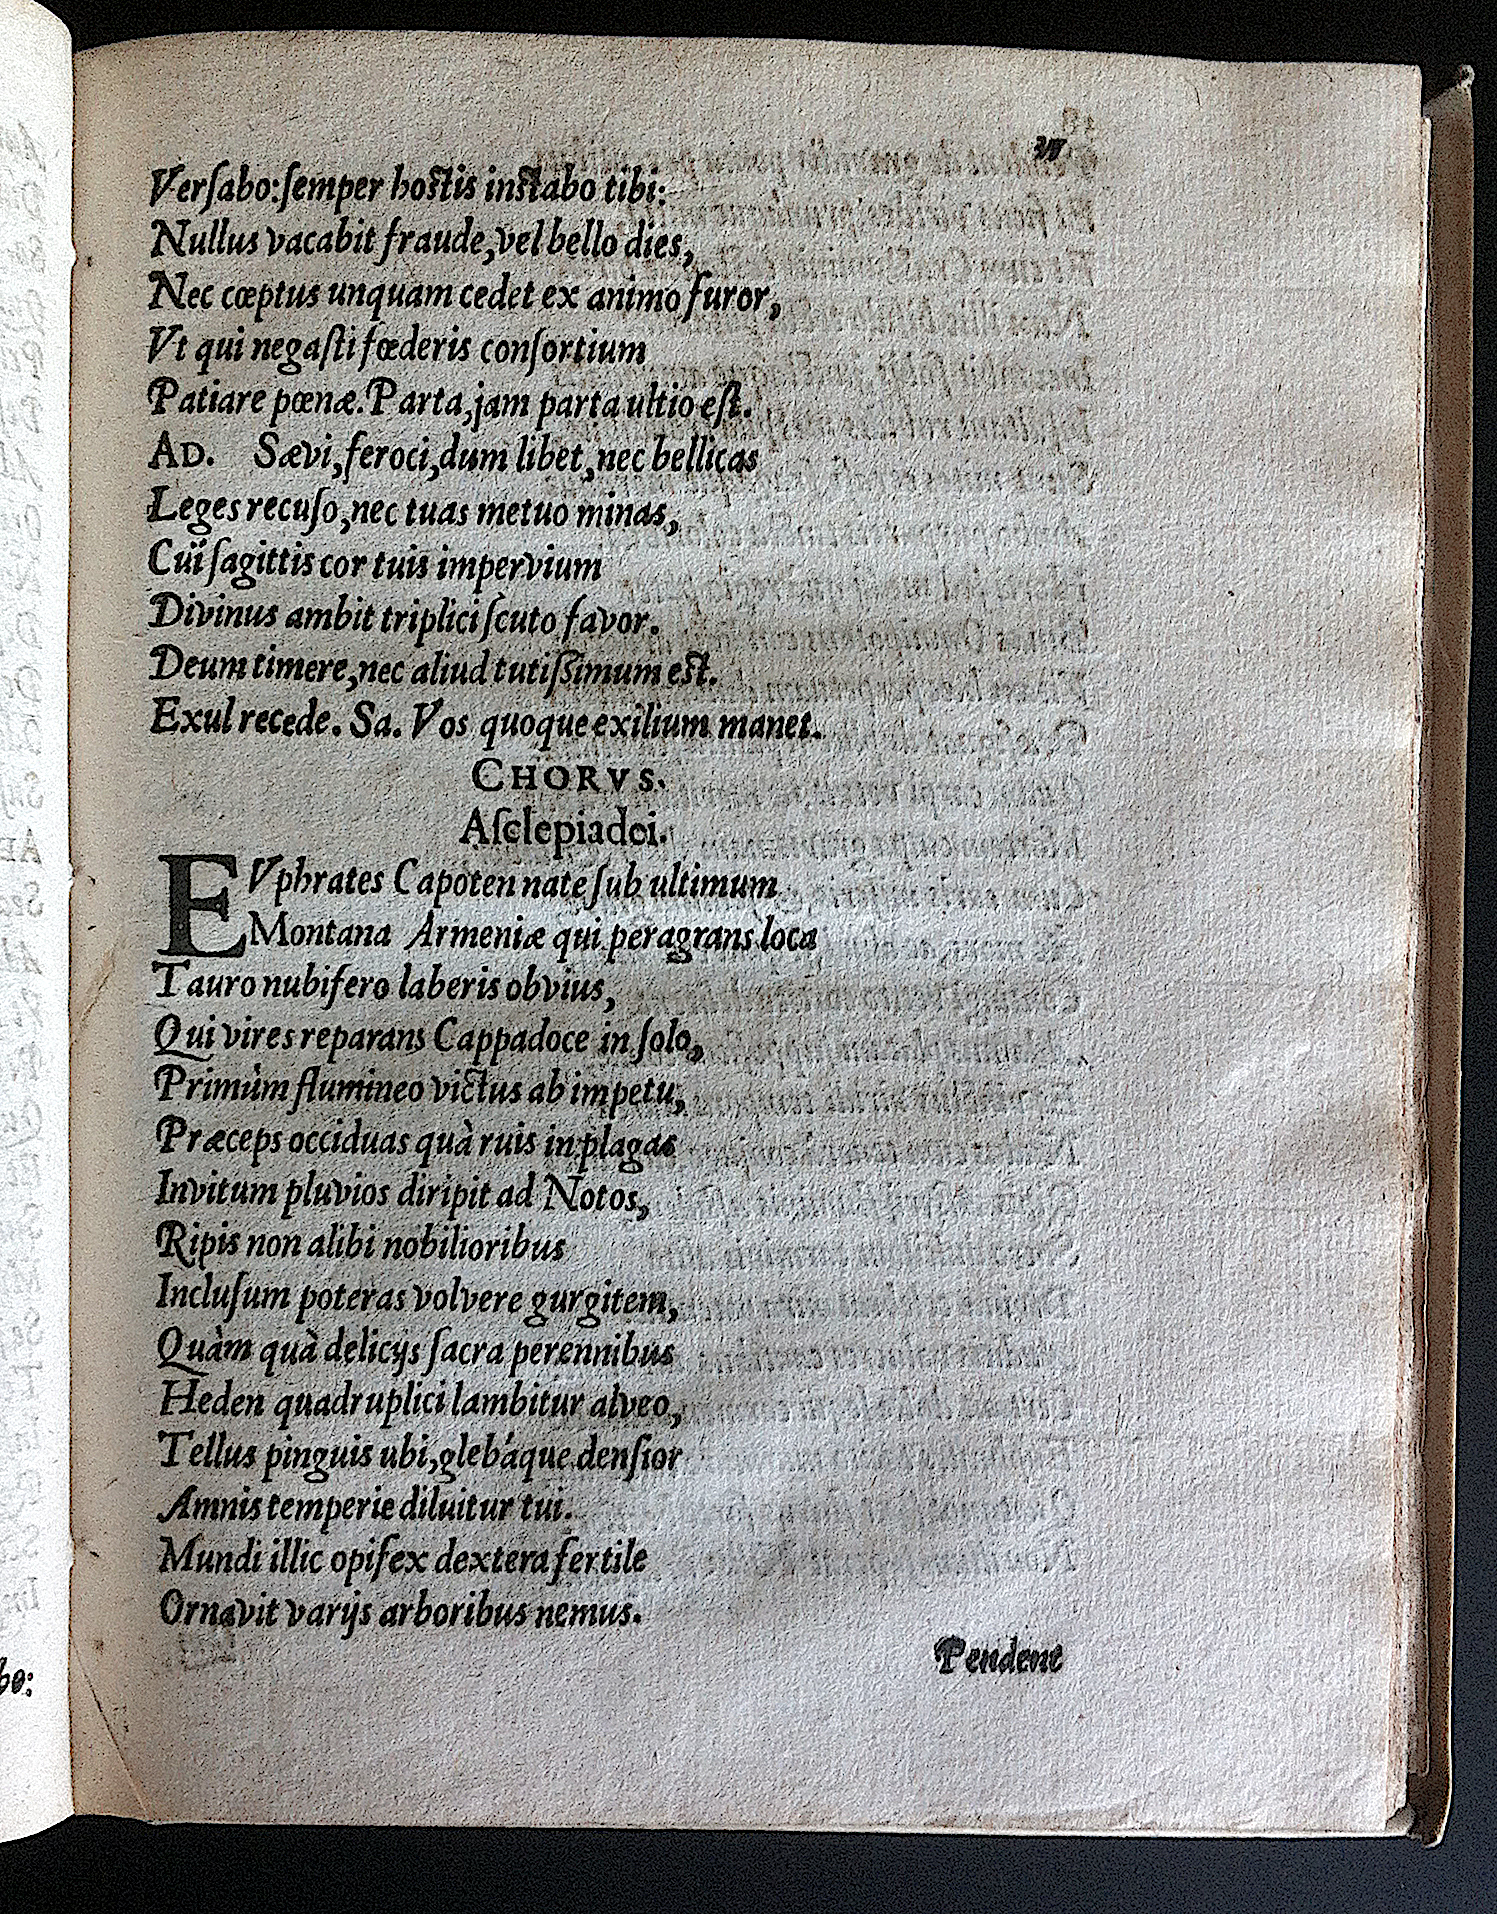 Verſabo:ſemper hostis instabo tibi:
Nullus vacabit fraude,vel bello dies,
Nec cœptus unquam cedet ex animo furor,
Vt qui negaſti fœderis conſortium
Patiare pœnæ. Parta,jam parta ultio eſt.
AD. Sævi,feroci,dum libet,nec bellicas
Leges recuſo,nec tuas metuo minas,
Cuï ſagittis cor tuis impervium
Divinus ambit triplici ſcuto favor.
Deum timere,nec aliud tutiſſimum eſt.
Exul recede. Sa. Vos quoque exilium manet.
CHORVS.
Aſclepiadei.
EVphrates Capoten nate ſub ultimum
Montana Armeniæ qui peragrans loca
Tauro nubifero laberis obvius,
Qui vires reparans Cappadoce in ſolo,
Primùm flumineo victus ab impetu,
Præceps occiduas quà ruis in plagas
Invitum pluvios diripit ad Notos,
Ripis non alibi nobilioribus
Incluſum poteras volvere gurgitem,
Quàm quà delicijs ſacra perennibus
Heden quadruplici lambitur alveo,
Tellus pinguis ubi,glebáque denſior
Amnis temperie diluitur tui.
Mundi illic opifex dextera fertile
Ornavit varijs arboribus nemus.
Pendent
bo: